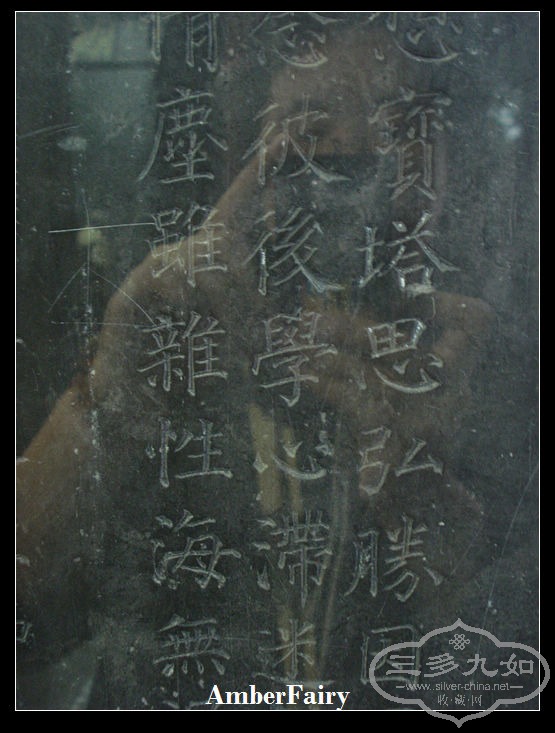 寶塔思弘勝因
彼後學心滯迷
情塵雖雜性海無
AmberFairy
三多九如
www.silver-china.net
收·藏·网